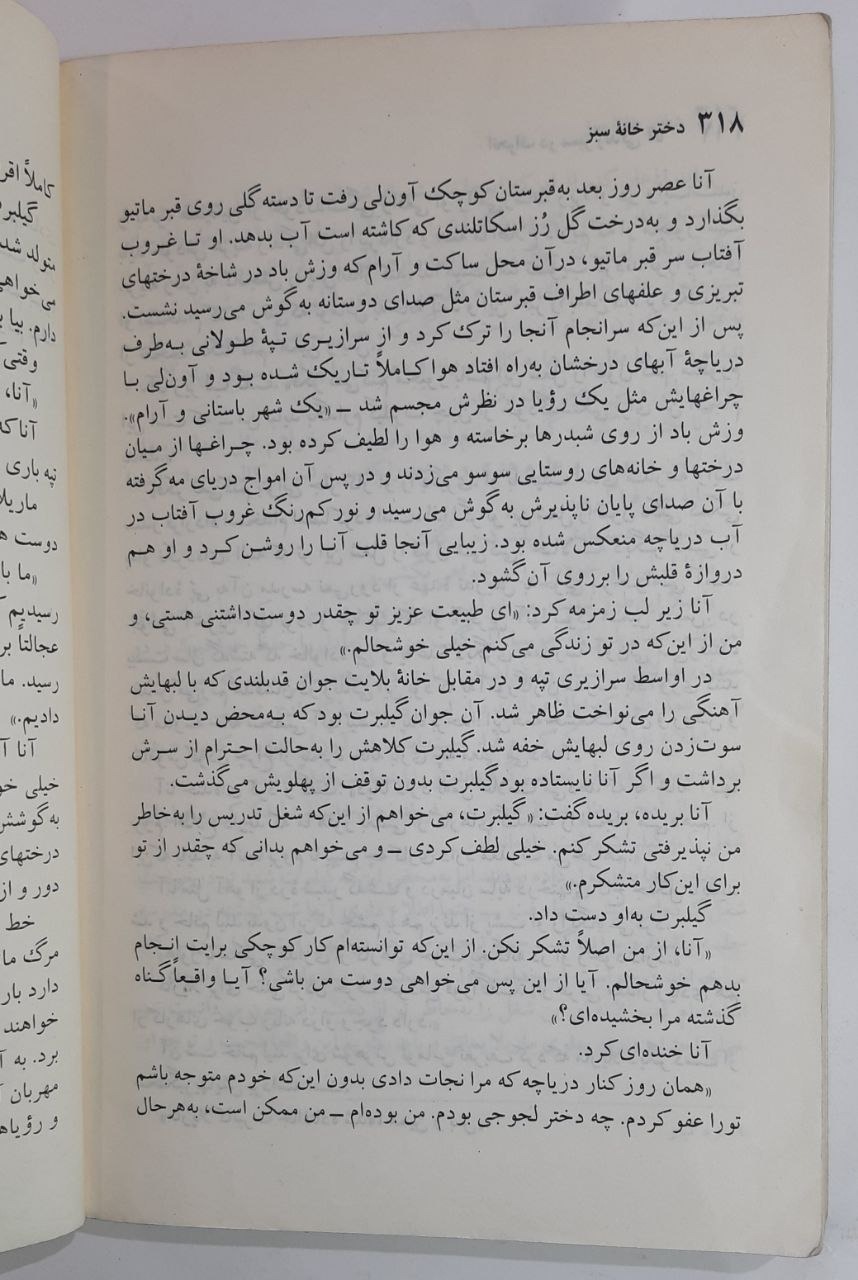 ۳۱۸ دختر خانهٔ سبز
آنا عصر روز بعد به‌قبرستان کوچک آون‌لی رفت تا دسته گلی روی قبر ماتیو
بگذارد و به‌درخت گل رُز اسکاتلندی که کاشته است آب بدهد. او تا غروب
آفتاب سر قبر ماتیو، درآن محل ساکت و آرام که وزش باد در شاخهٔ درختهای
تبریزی و علفهای اطراف قبرستان مثل صدای دوستانه به‌گوش می‌رسید نشست.
پس از این‌که سرانجام آنجا را ترک کرد و از سرازیری تپهٔ طولانی به‌طرف
دریاچهٔ آبهای درخشان به‌راه افتاد هوا کاملاً تاریک شده بود و آون‌لی با
چراغهایش مثل یک رؤیا در نظرش مجسم شد ــ «یک شهر باستانی و آرام».
وزش باد از روی شبدرها برخاسته و هوا را لطیف کرده بود. چراغها از میان
درختها و خانه‌های روستایی سوسو می‌زدند و در پس آن امواج دریای مه‌گرفته
با آن صدای پایان ناپذیرش به‌گوش می‌رسید و نور کم‌رنگ غروب آفتاب در
آب دریاچه منعکس شده بود. زیبایی آنجا قلب آنا را روشن کرد و او هم
دروازهٔ قلبش را برروی آن گشود.
آنا زیر لب زمزمه کرد: «ای طبیعت عزیز تو چقدر دوست‌داشتنی هستی، و
من از این‌که در تو زندگی می‌کنم خیلی خوشحالم.»
در اواسط سرازیری تپه و در مقابل خانهٔ بلایت جوان قدبلندی که با لبهایش
آهنگی را می‌نواخت ظاهر شد. آن جوان گیلبرت بود که به‌محض دیدن آنا
سوت‌زدن روی لبهایش خفه شد. گیلبرت کلاهش را به‌حالت احترام از سرش
برداشت و اگر آنا نایستاده بود گیلبرت بدون توقف از پهلویش می‌گذشت.
آنا بریده، بریده گفت: «گیلبرت، می‌خواهم از این‌که شغل تدریس را به‌خاطر
من نپذیرفتی تشکر کنم. خیلی لطف کردی ــ و می‌خواهم بدانی که چقدر از تو
برای این‌کار متشکرم.»
گیلبرت به‌او دست داد.
«آنا، از من اصلاً تشکر نکن. از این‌که توانسته‌ام کار کوچکی برایت انجام
بدهم خوشحالم. آیا از این پس می‌خواهی دوست من باشی؟ آیا واقعاً گناه
گذشته مرا بخشیده‌ای؟»
آنا خنده‌ای کرد.
«همان روز کنار دریاچه که مرا نجات دادی بدون این‌که خودم متوجه باشم
تورا عفو کردم. چه دختر لجوجی بودم. من بوده‌ام ــ من ممکن است، به‌هرحال